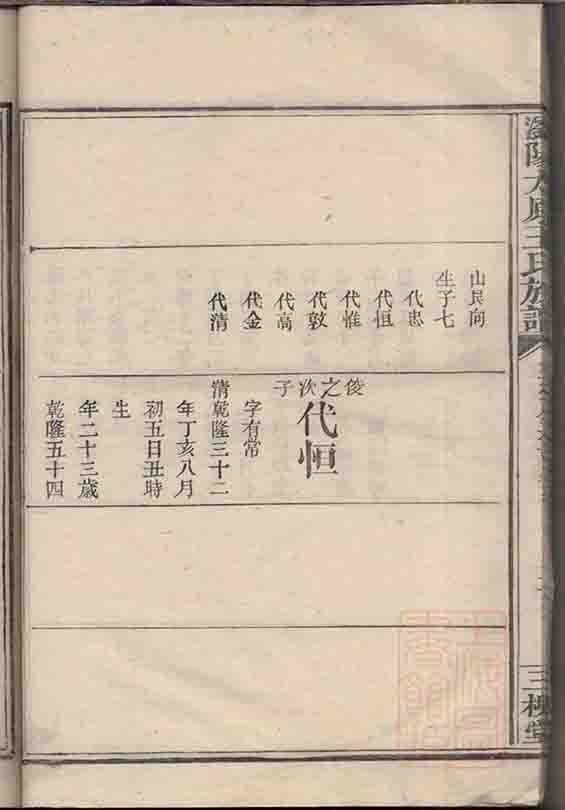 瀏陽太原王氏族譜
三槐堂
山艮向
生子七
代忠
代恒
代惟
代敦
代高
代金
代清
俊之次子
代恒
字有常
清乾隆三十二
年丁亥八月
初五日丑時
生
年二十三歲
乾隆五十四